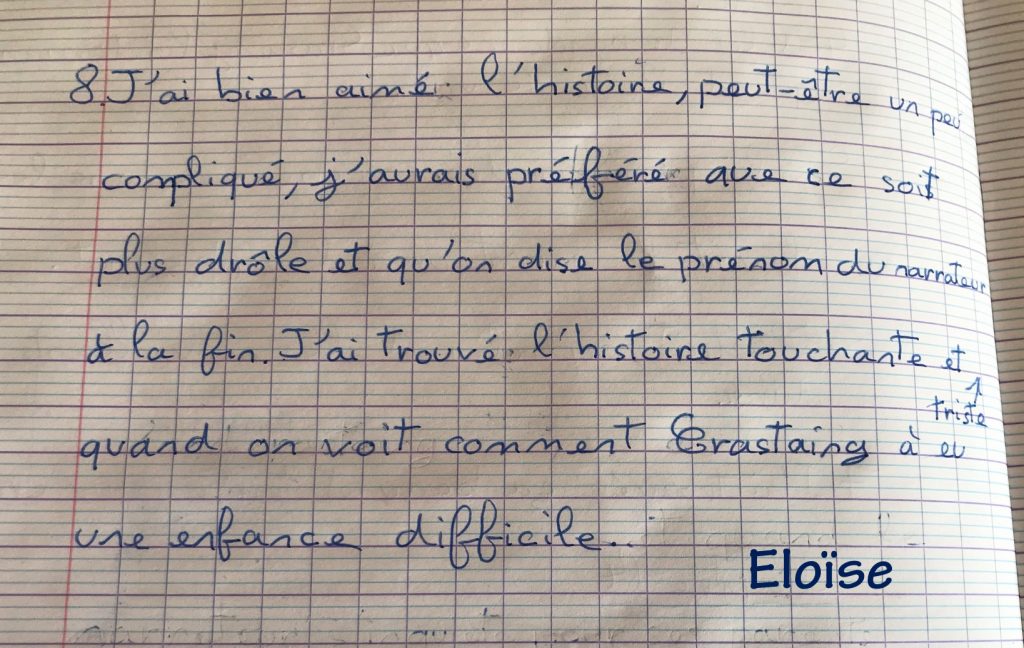 8. J'ai bien aimé l'histoire, peut-être un peu
compliqué, j'aurais préféré que ce soit
plus drôle et qu'on dise le prénom du narrateur
à la fin. J'ai trouvé l'histoire touchante et
triste
quand on voit comment Crastaing à eu
une enfance difficile..
Eloïse